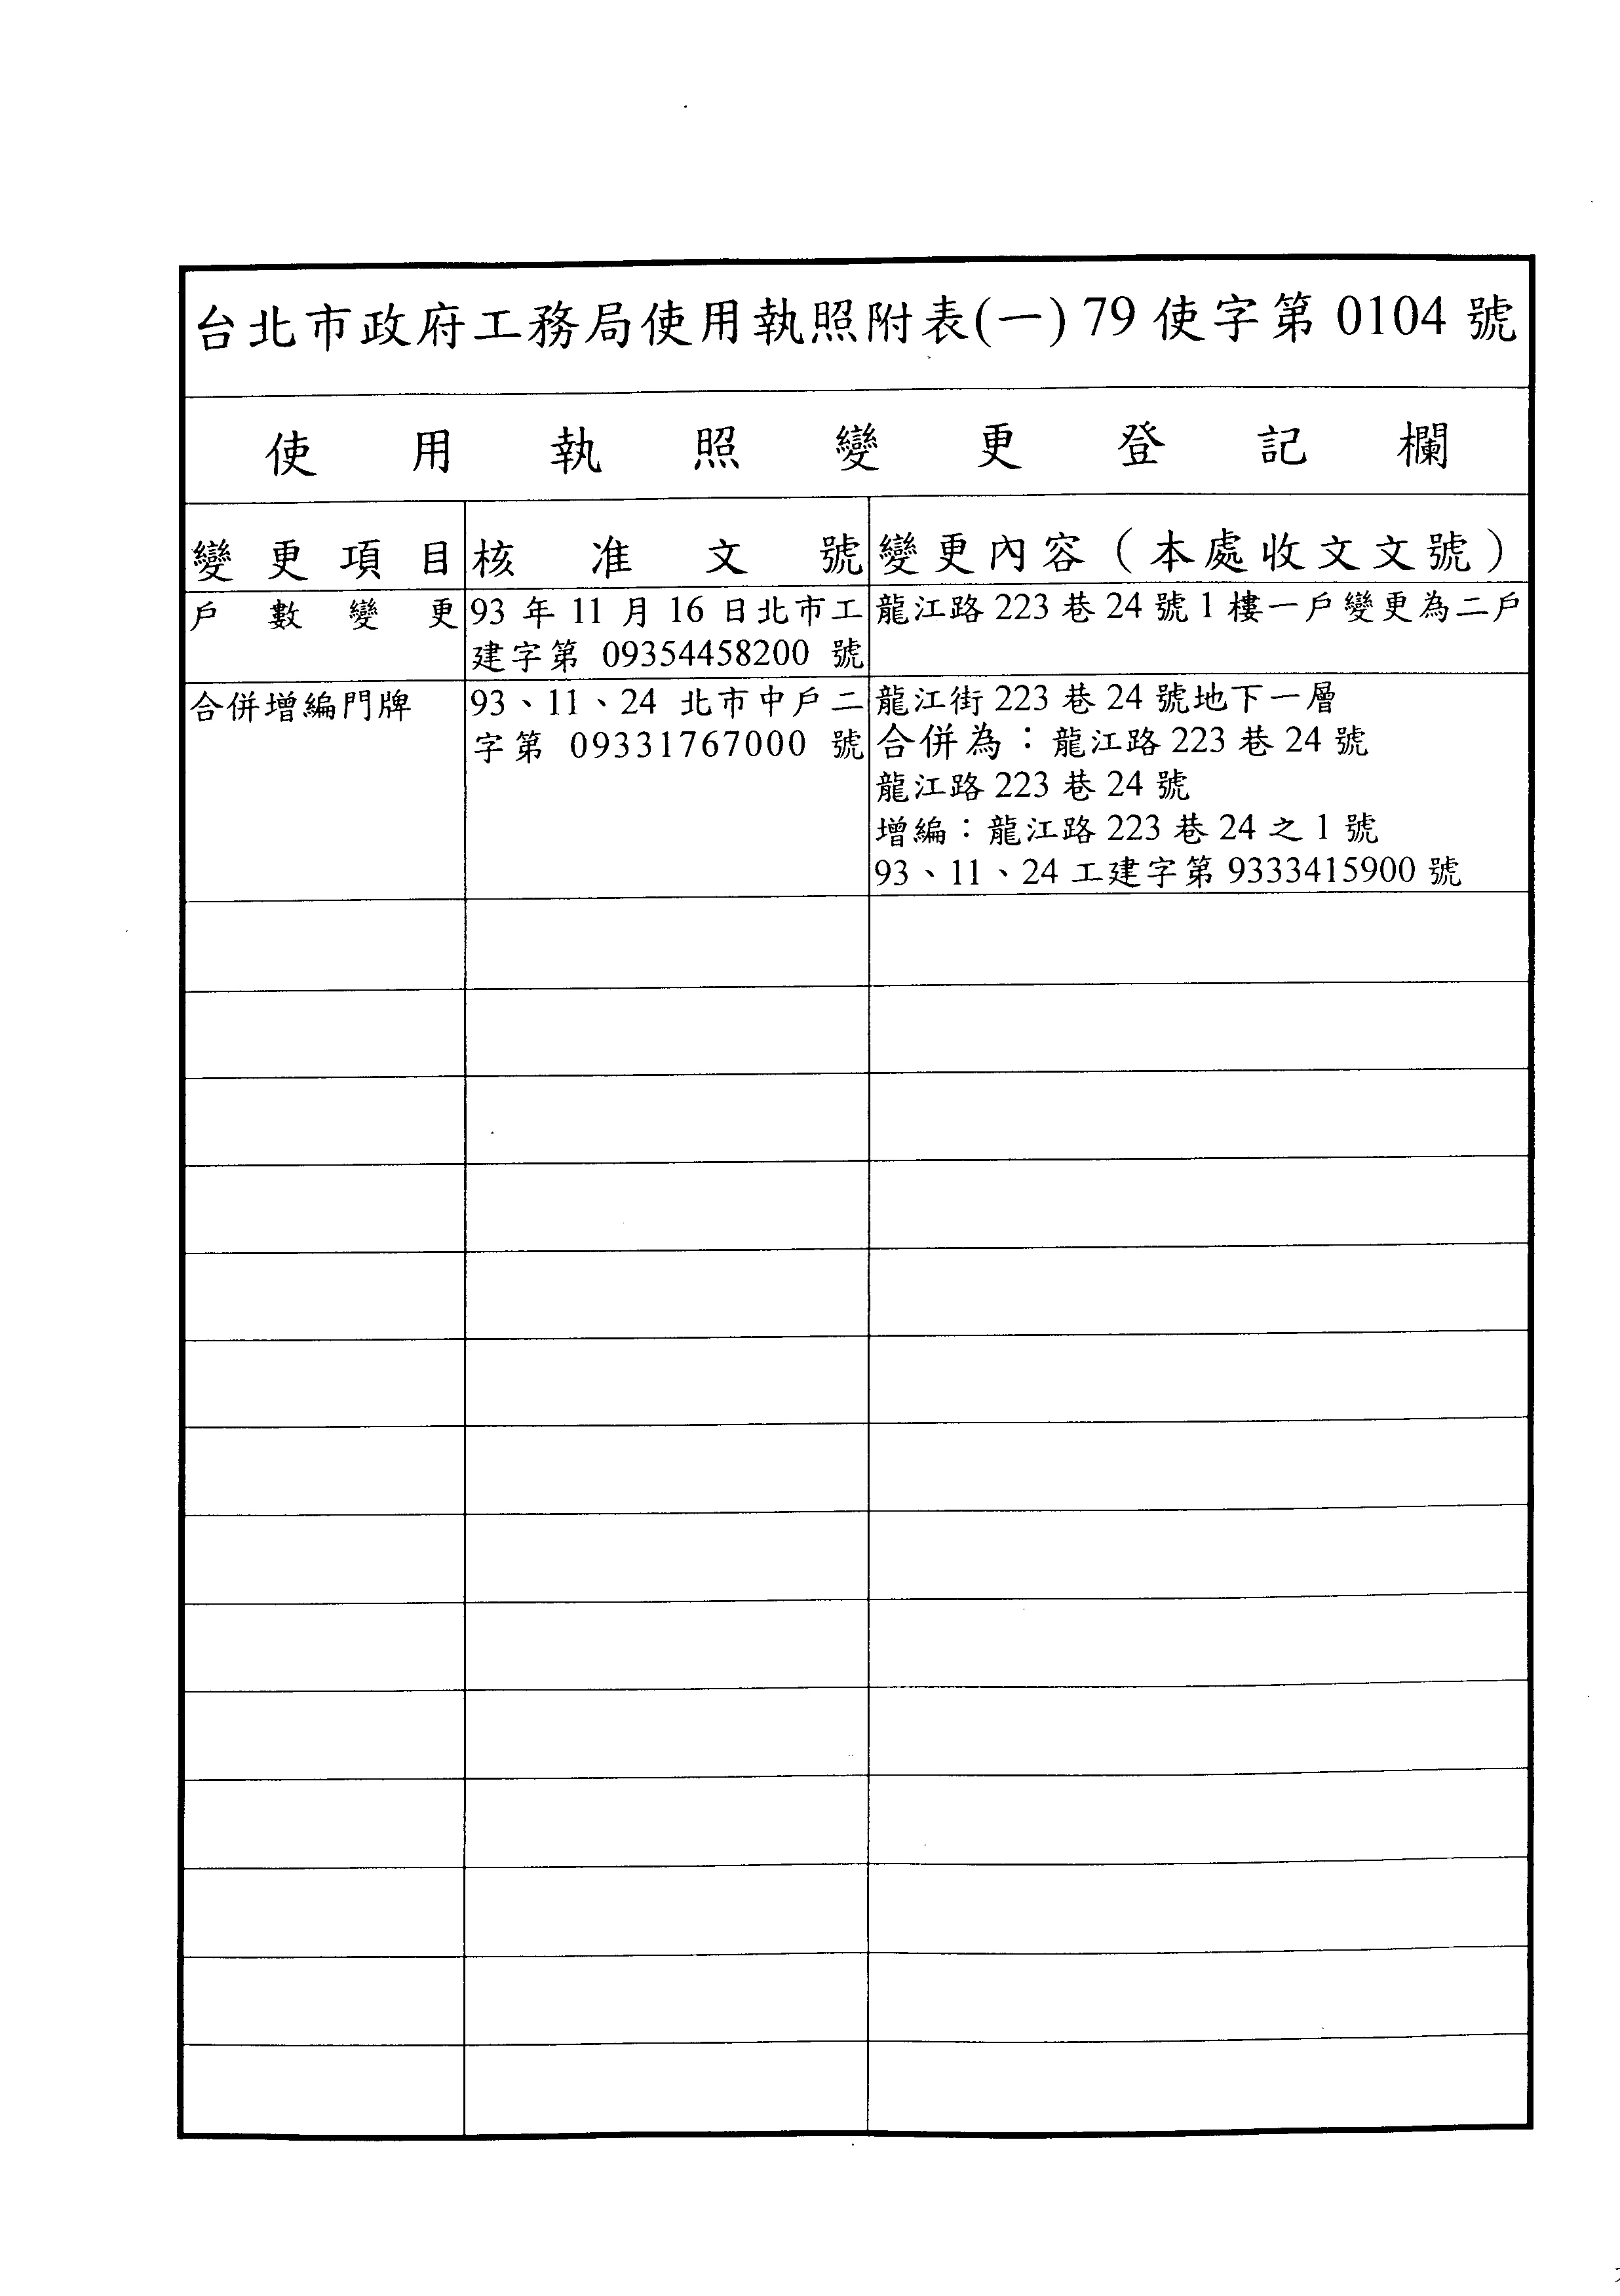 台北市政府工務局使用執照附表(一) 79 使字第 0104 號
使用執照變更登記欄
變更項目 核准文號 變更內容（本處收文文號）
戶數變更 93 年 11 月 16 日北市工 龍江路 223 巷 24 號 1 樓一戶變更為二戶
建字第 09354458200 號
合併增編門牌 93、11、24 北市中戶二 龍江街 223 巷 24 號地下一層
字第 09331767000 號 合併為：龍江路 223 巷 24 號
龍江路 223 巷 24 號
增編：龍江路 223 巷 24 之 1 號
93、11、24 工建字第 9333415900 號